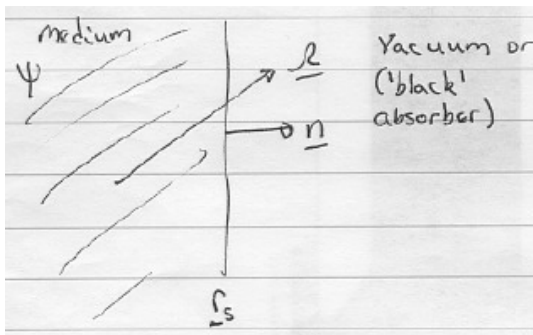 medium
Ψ
Ω
n
Vacuum or
('black'
absorber)
rs